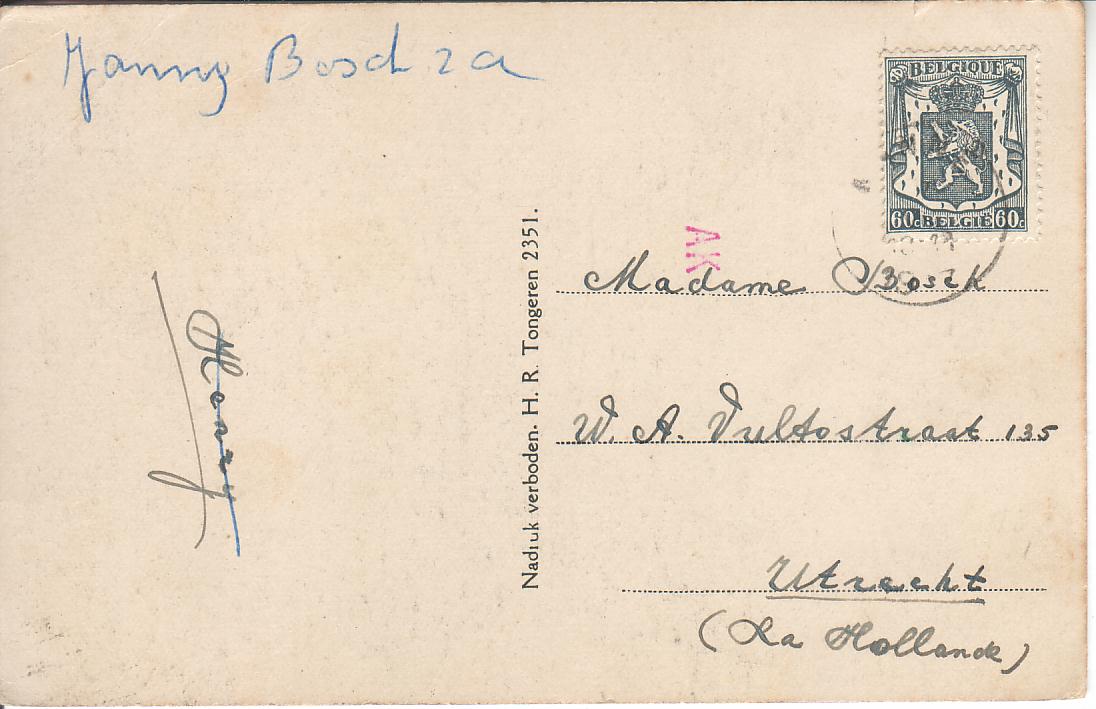 Janny Bosch 2a
BELGIQUE
60c BELGIË 60c
AK
Madame Bosch
W. A. Vultostraat 135
Utrecht
(La Hollande)
Nadruk verboden. H. R. Tongeren 2351.
Henry